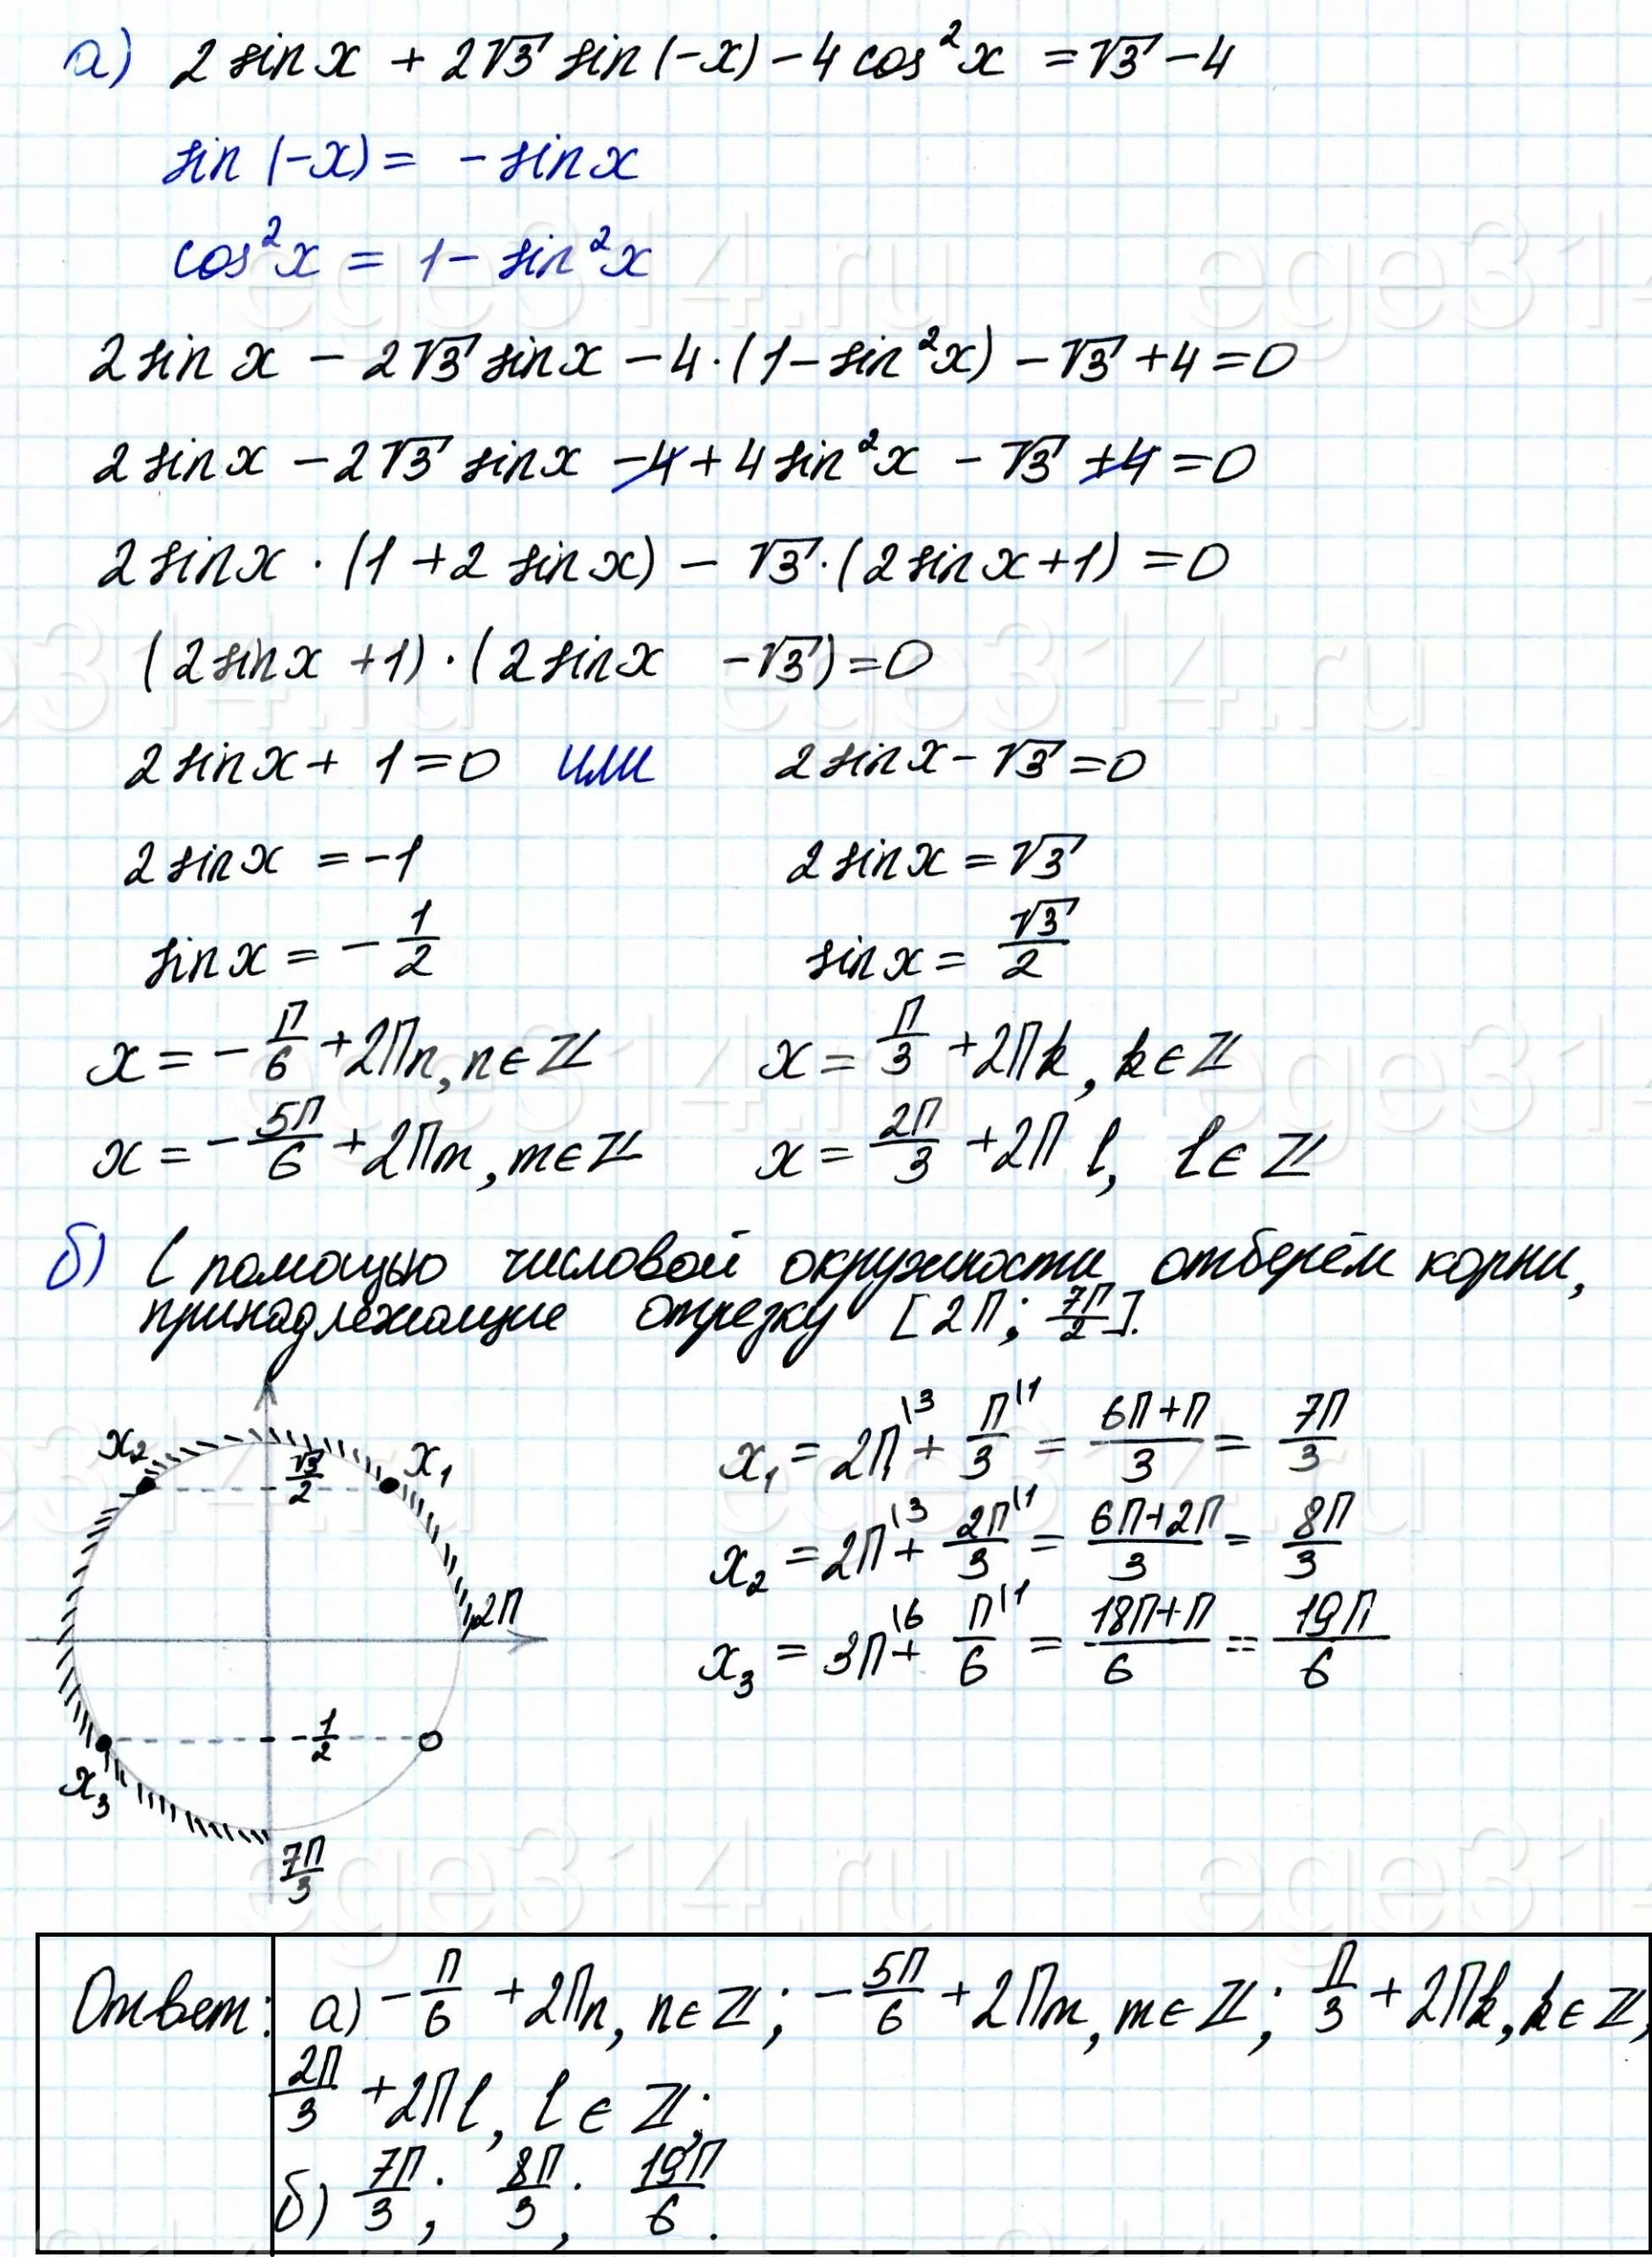 а) 2 sin x + 2√3 sin(-x) - 4 cos²x = √3 - 4
sin(-x) = - sin x
cos²x = 1 - sin²x
2 sin x - 2√3 sin x - 4·(1 - sin²x) - √3 + 4 = 0
2 sin x - 2√3 sin x - 4 + 4 sin²x - √3 + 4 = 0
2 sin x · (1 + 2 sin x) - √3·(2 sin x + 1) = 0
(2 sin x + 1)·(2 sin x - √3) = 0
2 sin x + 1 = 0 или 2 sin x - √3 = 0
2 sin x = -1 2 sin x = √3
sin x = -1/2 sin x = √3/2
x = -П/6 + 2Пn, n ∈ Z x = П/3 + 2Пk, k ∈ Z
x = -5П/6 + 2Пm, m ∈ Z x = 2П/3 + 2Пl, l ∈ Z
б) С помощью числовой окружности отберём корни,
принадлежащие отрезку [2П; 7П/2].
x₂ √3/2 x₁
2П
-1/2
x₃
7П/3
x₁ = 2П\3 + П/3\1 = 6П+П/3 = 7П/3
x₂ = 2П\3 + 2П/3\1 = 6П+2П/3 = 8П/3
x₃ = 3П\6 + П/6\1 = 18П+П/6 = 19П/6
Ответ: а) -П/6 + 2Пn, n ∈ Z; -5П/6 + 2Пm, m ∈ Z; П/3 + 2Пk, k ∈ Z;
2П/3 + 2Пl, l ∈ Z;
б) 7П/3; 8П/3; 19П/6.
ege314.ru